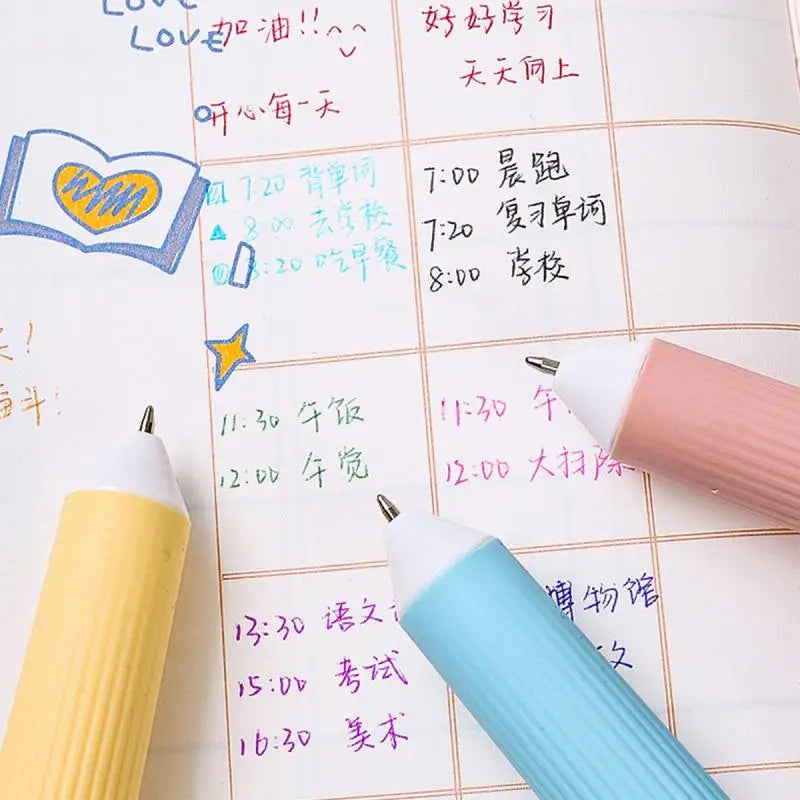 LOVE
LOVE
加油!!
开心每一天
好好学习
天天向上
7:20 背单词
8:00 去学校
8:20 吃早餐
7:00 晨跑
7:20 复习单词
8:00 学校
11:30 午饭
12:00 午觉
11:30 午
12:00 大扫除
13:30 语文
15:00 考试
16:30 美术
博物馆
文
!
奋斗!